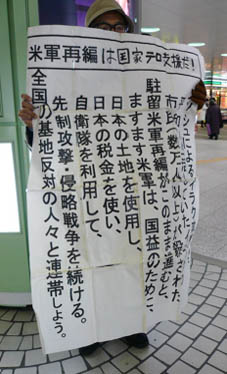 米軍再編は国家テロ支援だ!
シュによるイラク
市民(数万人以上)が殺された。
駐留米軍再編がこのまま進むと、
ますます米軍は、国益のために、
日本の土地を使用し、
日本の税金を使い、
自衛隊を利用して、
先制攻撃・侵略戦争を続ける。
全国の基地反対の人々と連帯しよう。